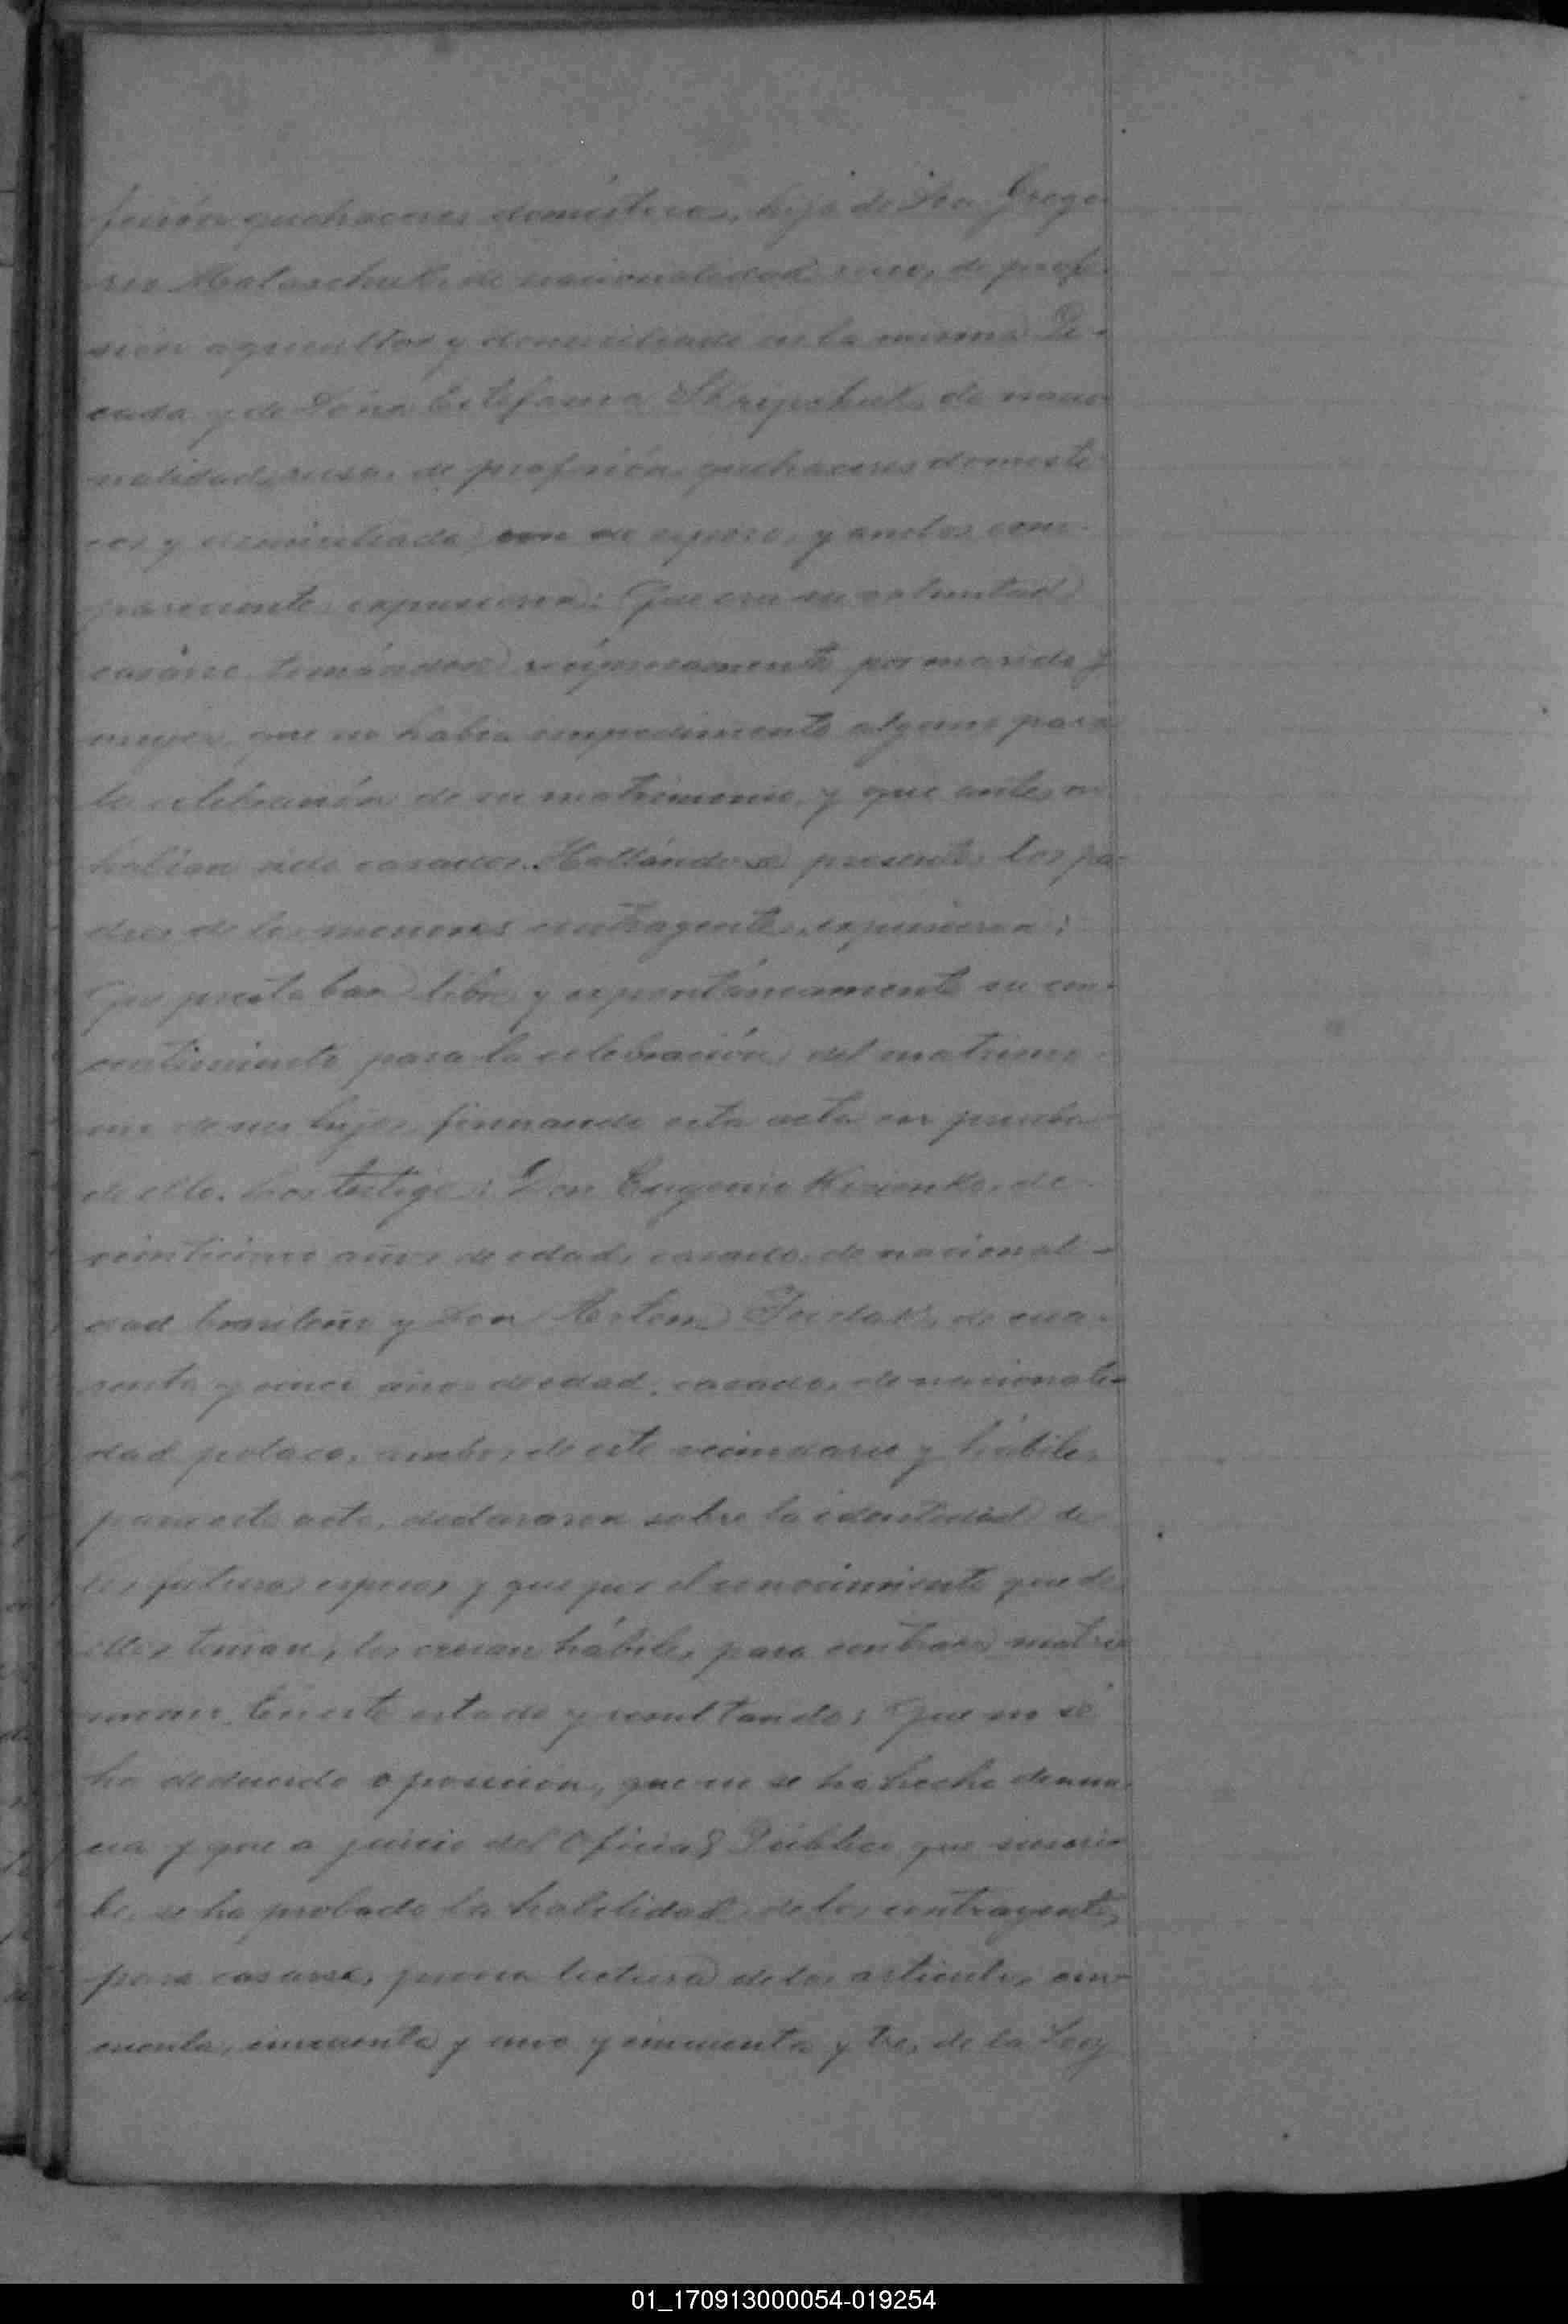 fesión quehaceres domésticos, hija de Don Grego-
rio de nacionalidad ruso, de profe-
sión agricultor y domiciliado en la misma Dé-
cada y de Doña Estefania de nacio-
nalidad rusa, de profesión quehaceres domésti-
cos y domiciliada con su esposo, y ambos com-
parecientes expusieron: Que era su voluntad
casarse tomándose recíprocamente por marido y
mujer, que no había impedimento alguno para
la celebración de su matrimonio, y que antes no
habían sido casados. Hallándose presentes los pa-
dres de los menores contrayentes, expusieron:
Que prestaban libre y espontáneamente su con-
sentimiento para la celebración del matrimo-
nio de sus hijos, firmando esta acta en prueba
de ello. Los testigos: Don Eugenio de
veinticinco años de edad, casado, de nacionali-
dad brasilero y Don Artem de cua-
renta y cinco años de edad, casado, de nacionali-
dad polaca, ambos de este vecindario y hábiles
para este acto, declararon sobre la identidad de
los futuros esposos y que por el conocimiento que de
ellos tenían, los creían hábiles para contraer matri-
monio. En este estado y resultando: Que no se
ha deducido oposición, que no se ha hecho denun-
cia y que a juicio del Oficial Público que suscri-
be, se ha probado la habilidad de los contrayentes
para casarse, previa lectura de los artículos cin-
cuenta, cincuenta y uno y cincuenta y tres de la Ley
01_170913000054-019254